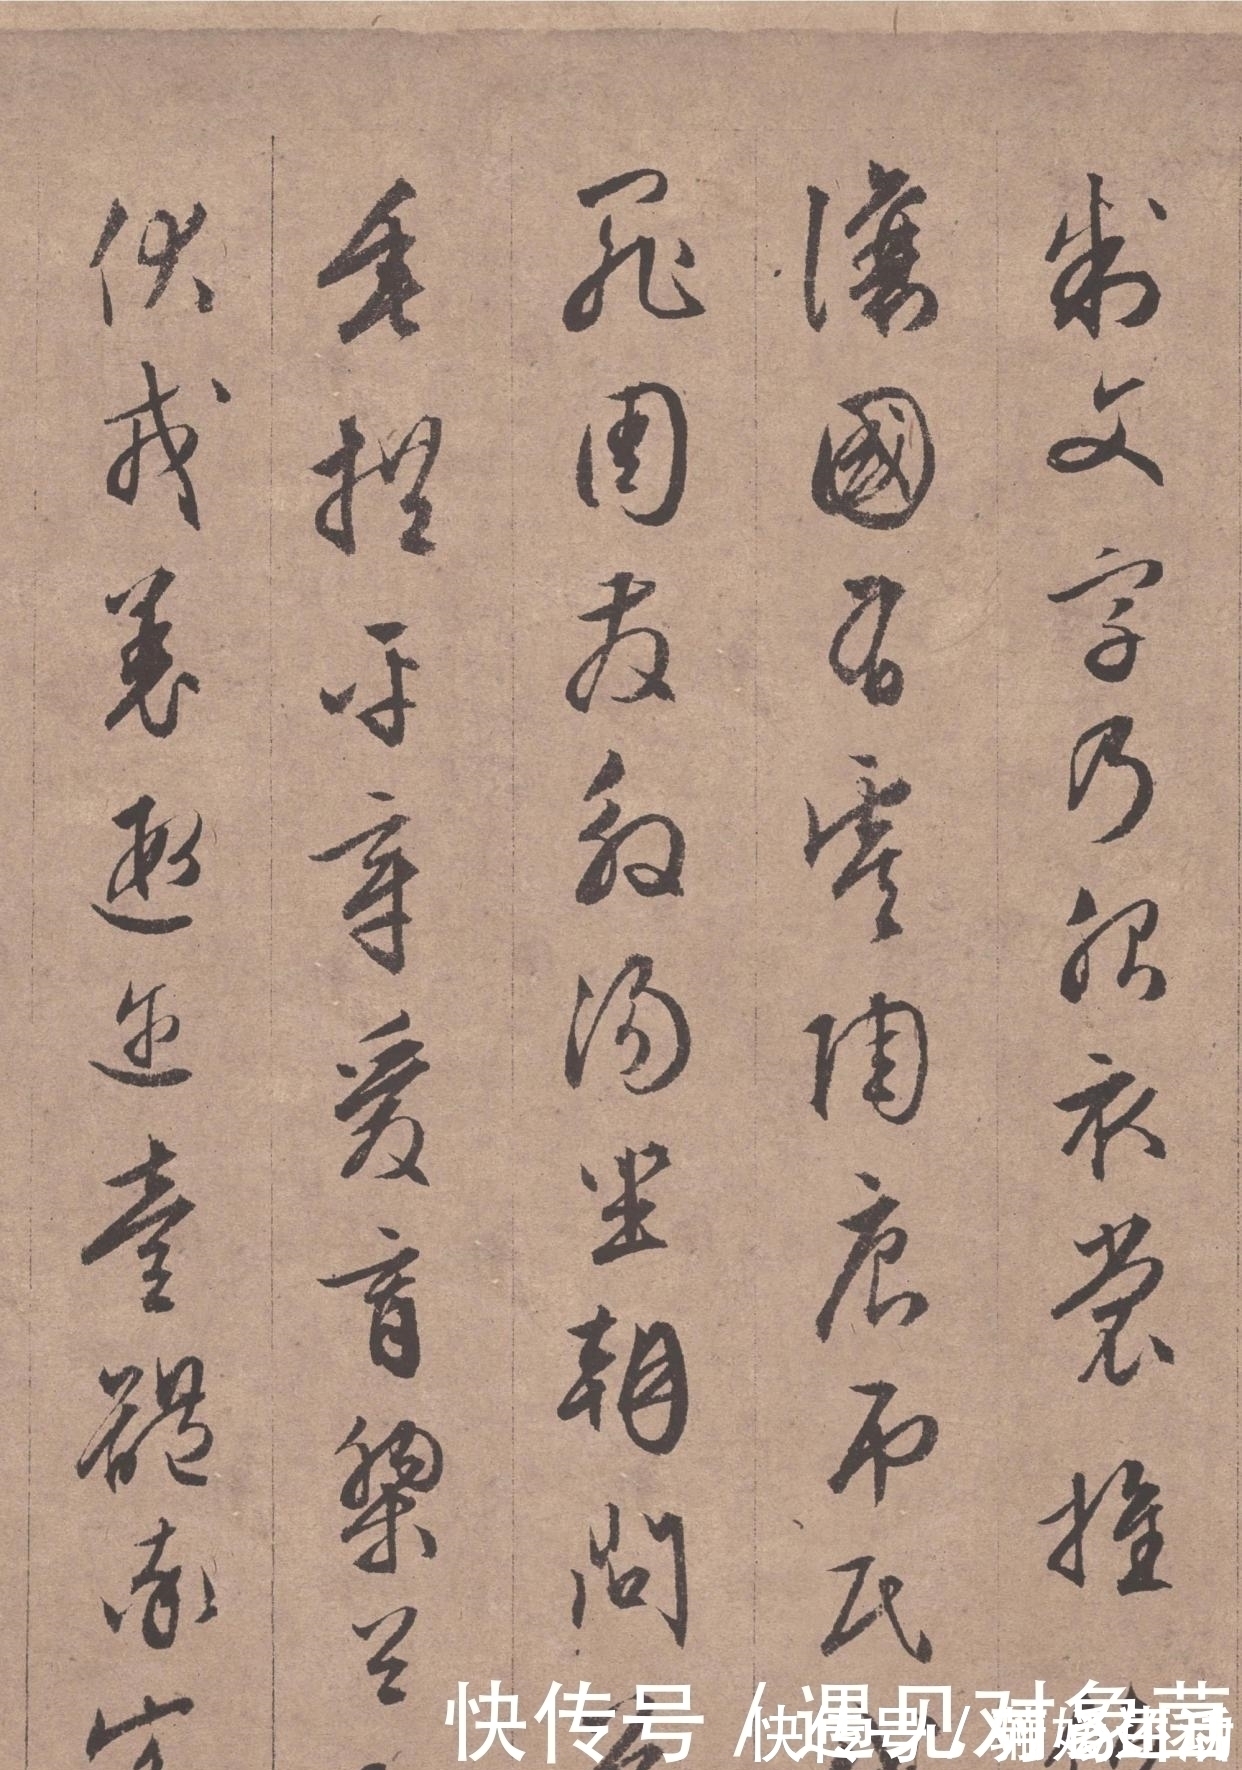 制文字乃服衣裳推
讓國有虞陶唐弔民
罪周發殷湯坐朝問
垂拱平章愛育黎首
伏戎羌遐邇壹體率賓
快传号 / 遇见对象菌
快传号 /